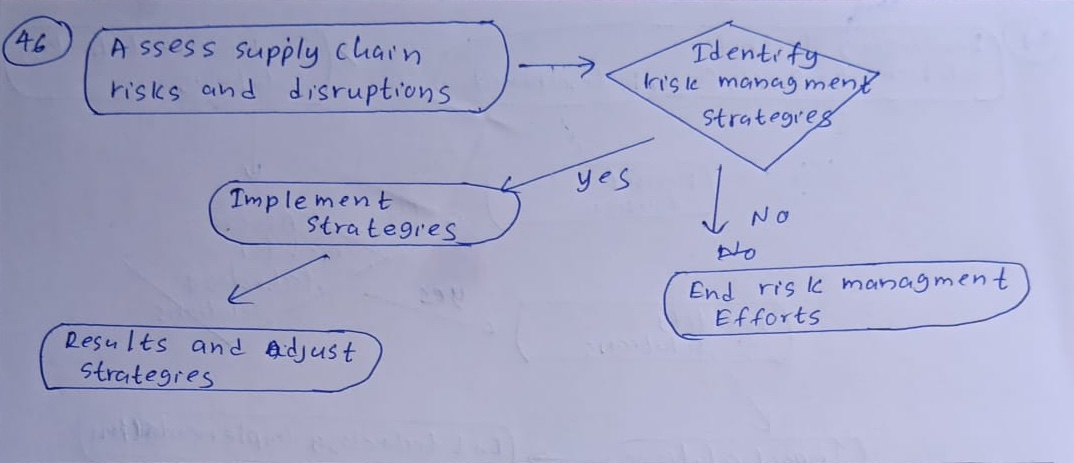 46
Assess supply chain
risks and disruptions
Identify
risk managment
strategies
yes
No
No
Implement
strategies
End risk managment
Efforts
Results and adjust
strategies